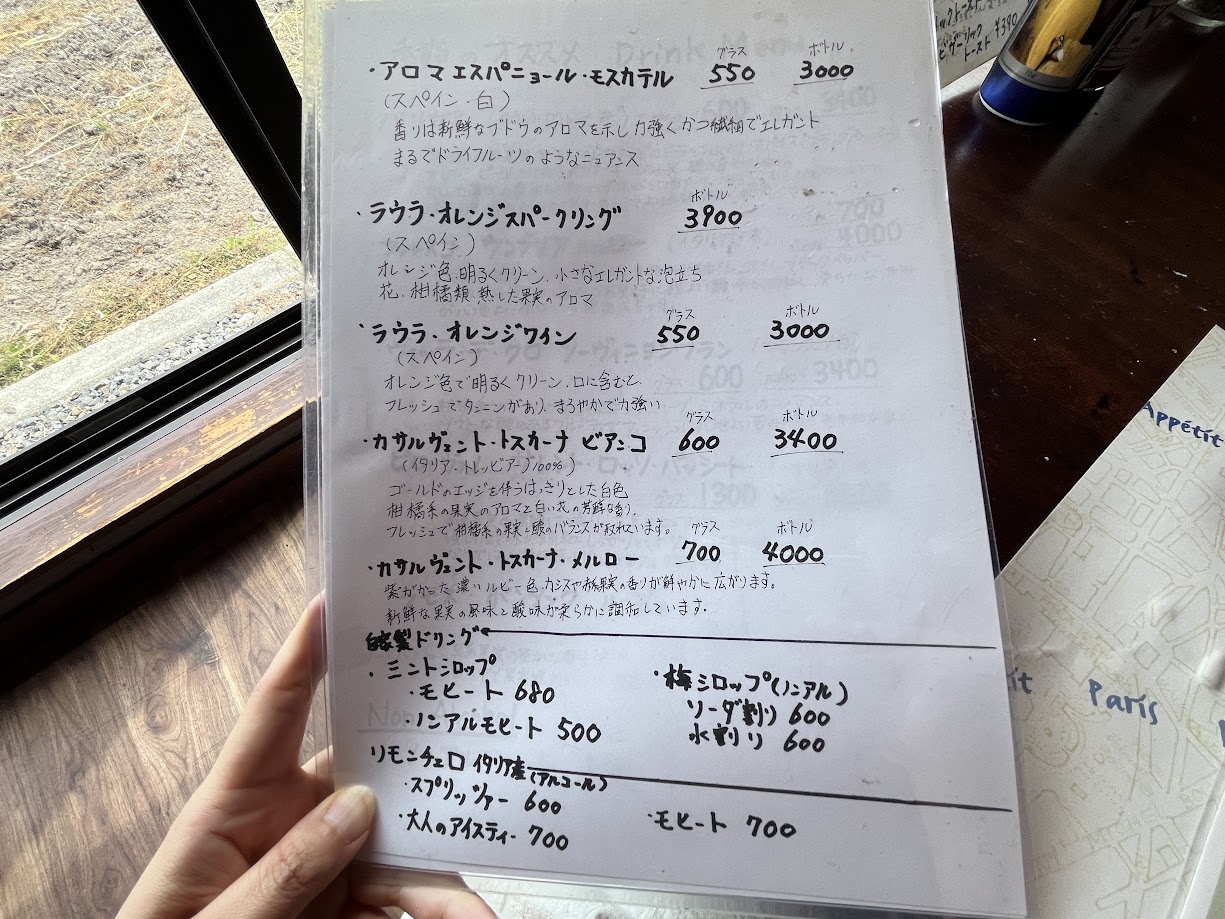 グラス ボトル
・アロマエスパニョール・モスカテル 550 3000
(スペイン・白)
香りは新鮮なブドウのアロマを示し力強くかつ繊細でエレガント
まるでドライフルーツのようなニュアンス
ボトル
・ラウラ・オレンジスパークリング 3900
(スペイン)
オレンジ色、明るくクリーン、小さなエレガントな泡立ち
花、柑橘類、熟した果実のアロマ
グラス ボトル
・ラウラ・オレンジワイン 550 3000
(スペイン)
オレンジ色で明るくクリーン、口に含むと
フレッシュでタンニンがあり、まろやかで力強い
グラス ボトル
・カサルヴェント・トスカーナ ビアンコ 600 3400
(イタリア・トレッビアーノ100%)
ゴールドのエッジを伴うはっきりとした白色
柑橘系の果実のアロマと白い花の芳醇な香り。
フレッシュで柑橘系の果実と酸のバランスが取れています。
グラス ボトル
・カサルヴェント・トスカーナ・メルロー 700 4000
紫がかった濃いルビー色、カシスや赤果実の香りが鮮やかに広がります。
新鮮な果実の風味と酸味が柔らかに調和しています。
自家製ドリンク
・ミントシロップ
・モヒート 680
・ノンアルモヒート 500
・梅シロップ(ノンアル)
ソーダ割り 600
水割り 600
リモンチェロ イタリア産(アルコール)
・スプリッツァー 600
・大人のアイスティー 700
・モヒート 700
トースト ¥390
Appétit
París